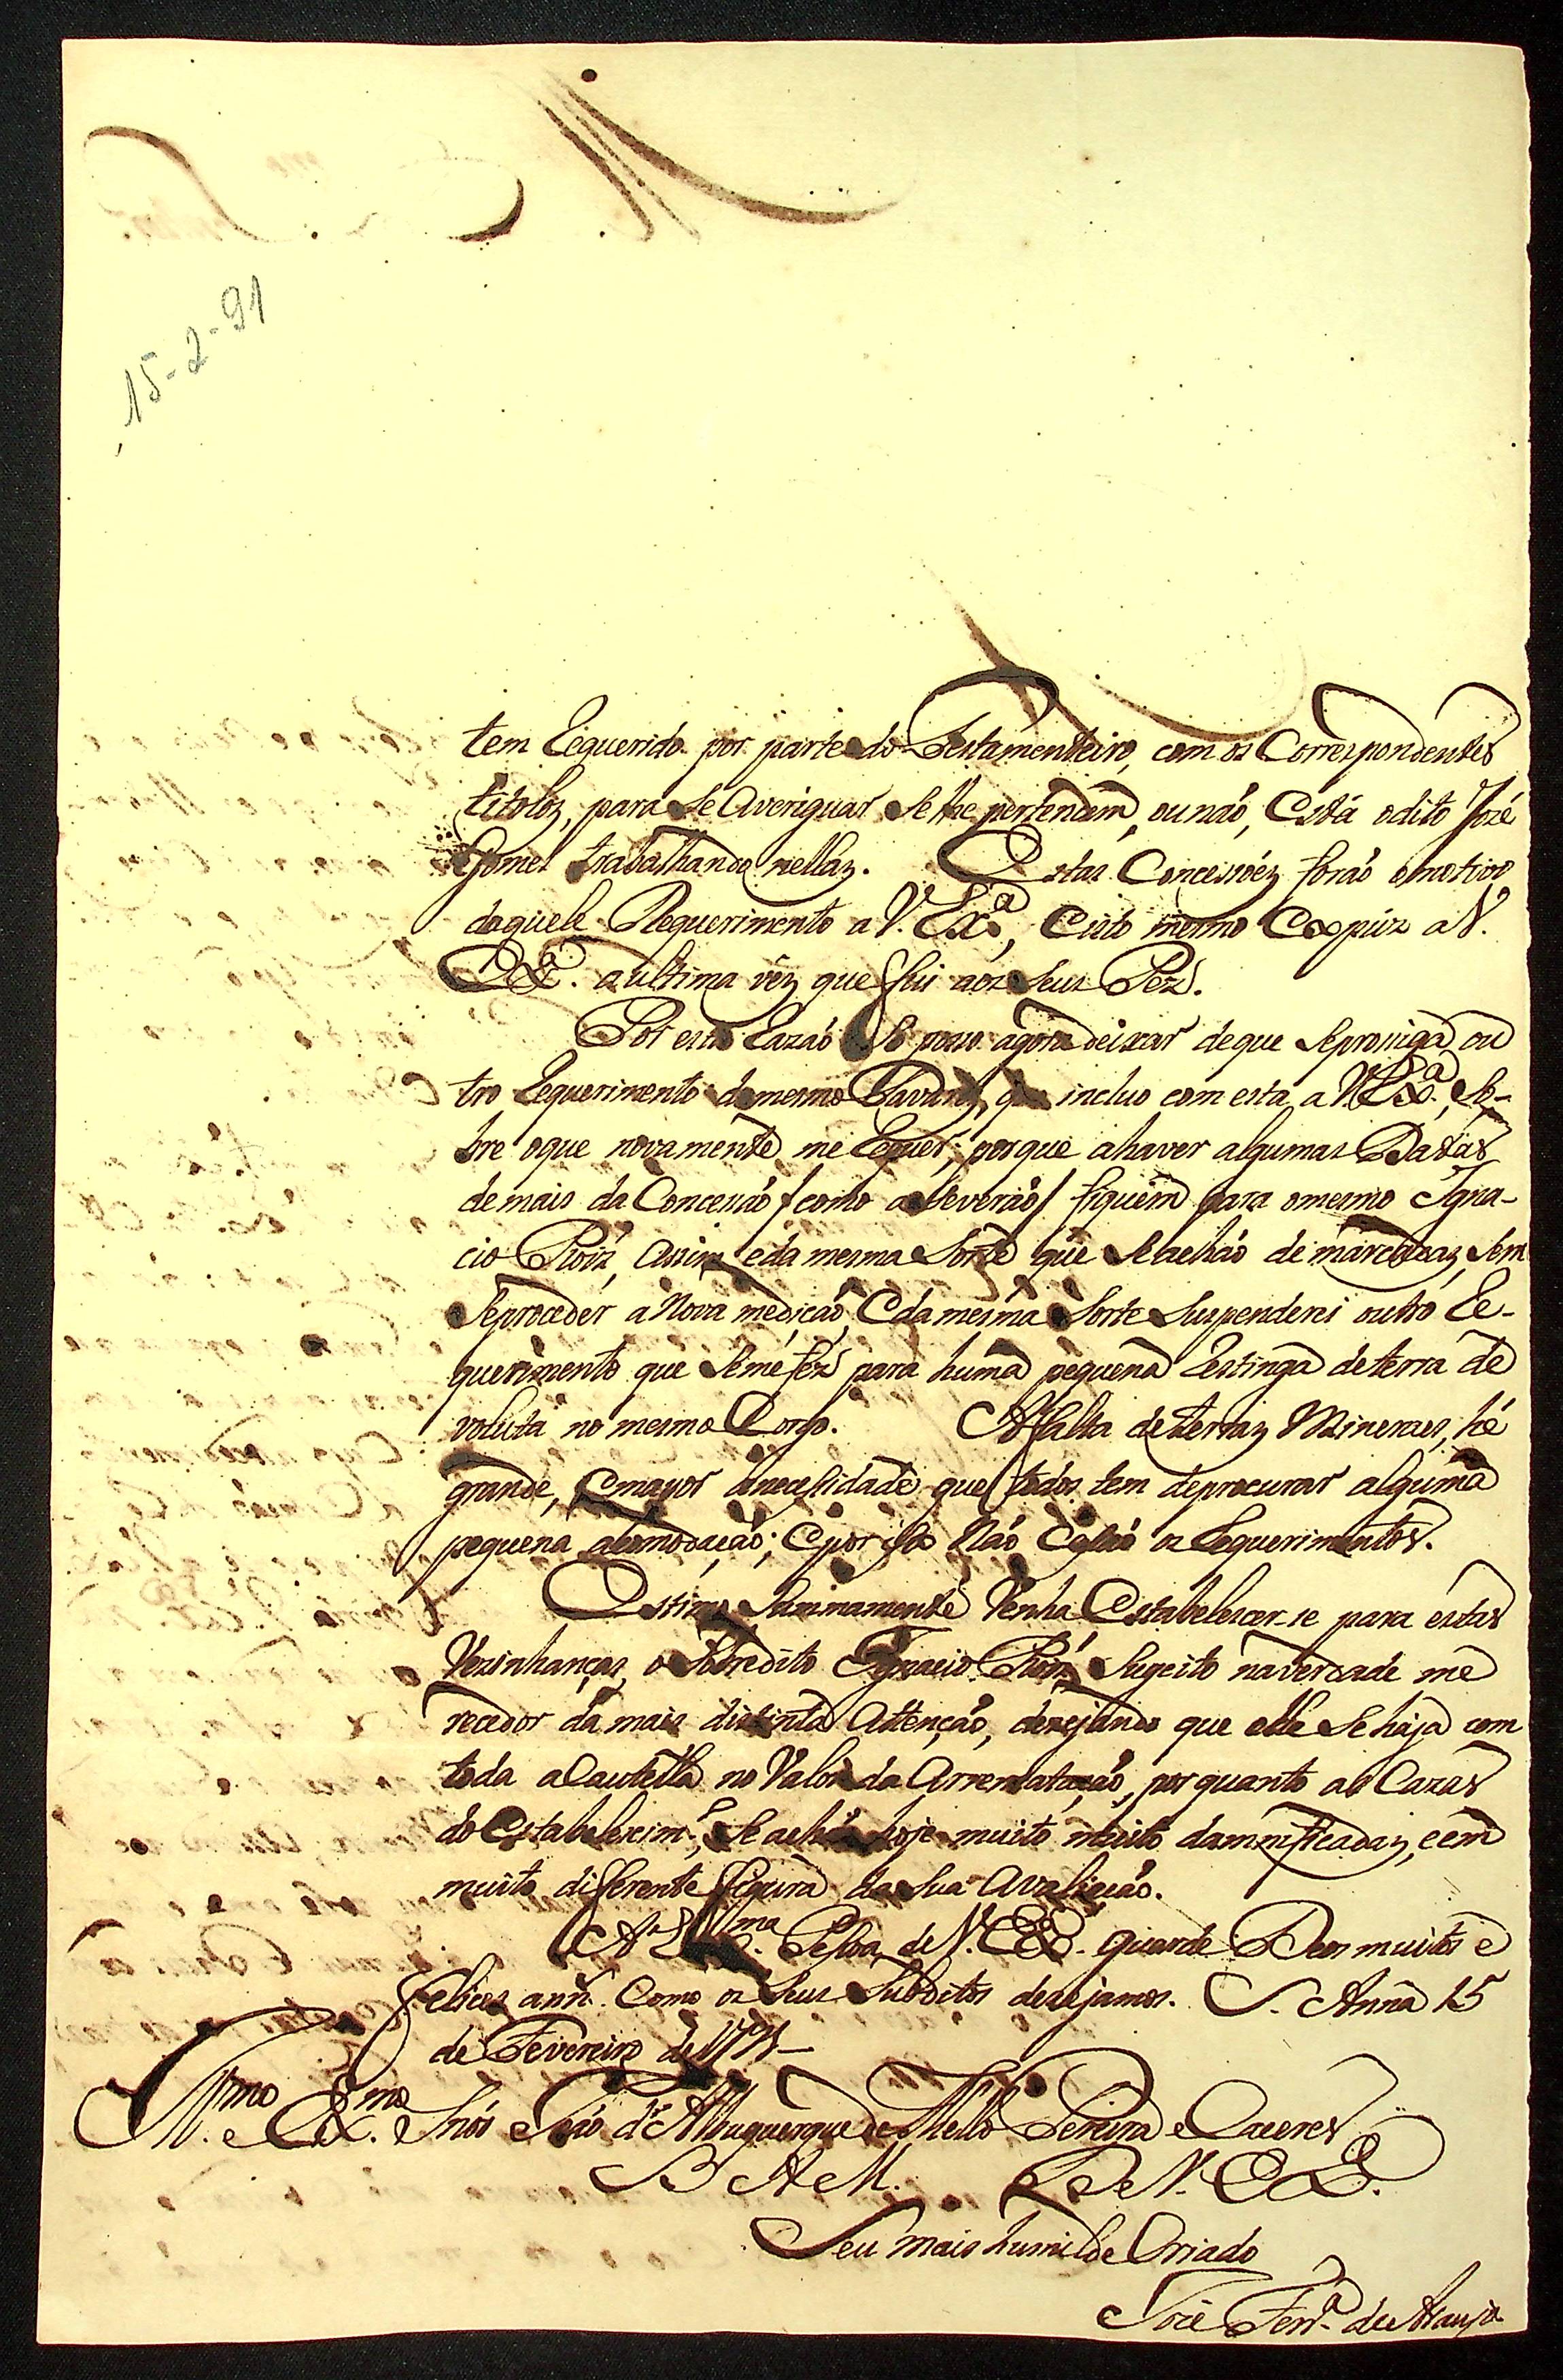 15-2-91
tem Requerido por parte do Testamenteiro, com os Correspondentes
titolos, para Se Averiguar Se lhe pertencem, ou não, Está o dito Jozé
Gomes trabalhando nellas. Estas Concessoés forão o motivo
daquele Requerimento a V. Exª, E isto mesmo Expuz a V.
Exª. a ultima vêz que fui aos Seus Pez.
Por esta Razão Só posso agora deixar de que Se prosiga, ou
tro Requerimento do mesmo que incluo com esta a V. Exª. So-
bre o que novamente me Requer; porque a haver algumas Datas
demais da Concessão / como aseverão / fiquem para o mesmo Igna-
cio Roiz, assim e da mesma Sorte que Se achão demarcadas, Sem
Se proceder a Nova medição, E da mesma Sorte Suspenderei outro Re-
querimento que Se me fez para huma pequena Restinga de terra de
voluta no mesmo Corgo. A falta de terras Mineraes, hé
grande, E mayor a necessidade que todos tem de procurar alguma
pequena acomodação; E por isso Não Cessão os Requerimentos.
Estimo Summamente Venha Estabelescer-se para estas
Vezinhanças, o Sobredito Ignacio Roiz Sugeito na verdade me
recedor da mais distinta Attenção, dezejando que elle Se haja com
toda a Cautella no Valor da Arrematação, por quanto as Cazas
do Estabelescimt.º, Se achão hoje muito muito damnificadas, e em
muito differente figura da Sua Avaliação.
A Illma. Pessoa de V. Exª. guarde Deos muitos e
felices annˢ. Como os Seus Subditos dezejamos. S. Anna 15
de Fevereiro de 1791 —
Illmo. e Exmo. Snór João d'Albuquerque de Mello Pereira e Caceres
B A M. De V. Exª.
Seu mais humilde Criado
Jozé Ferrª. de Araujo